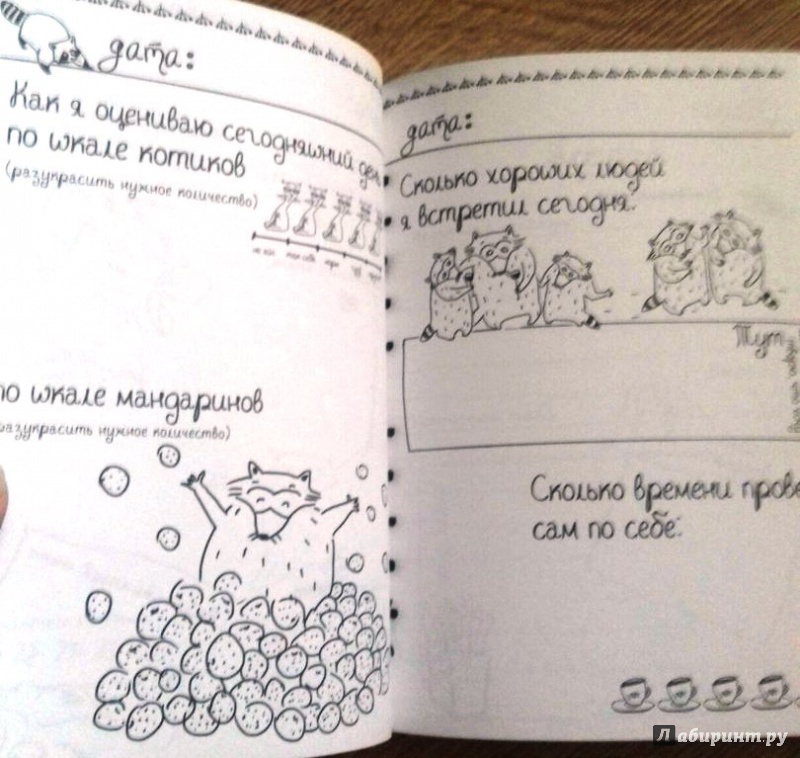 дата:
Как я оцениваю сегодняшний ден
по шкале котиков
(разукрасить нужное количество)
по шкале мандаринов
(разукрасить нужное количество)
дата:
Сколько хороших людей
я встретил сегодня:
Тут
Сколько времени прове
сам по себе:
Лабиринт.ру